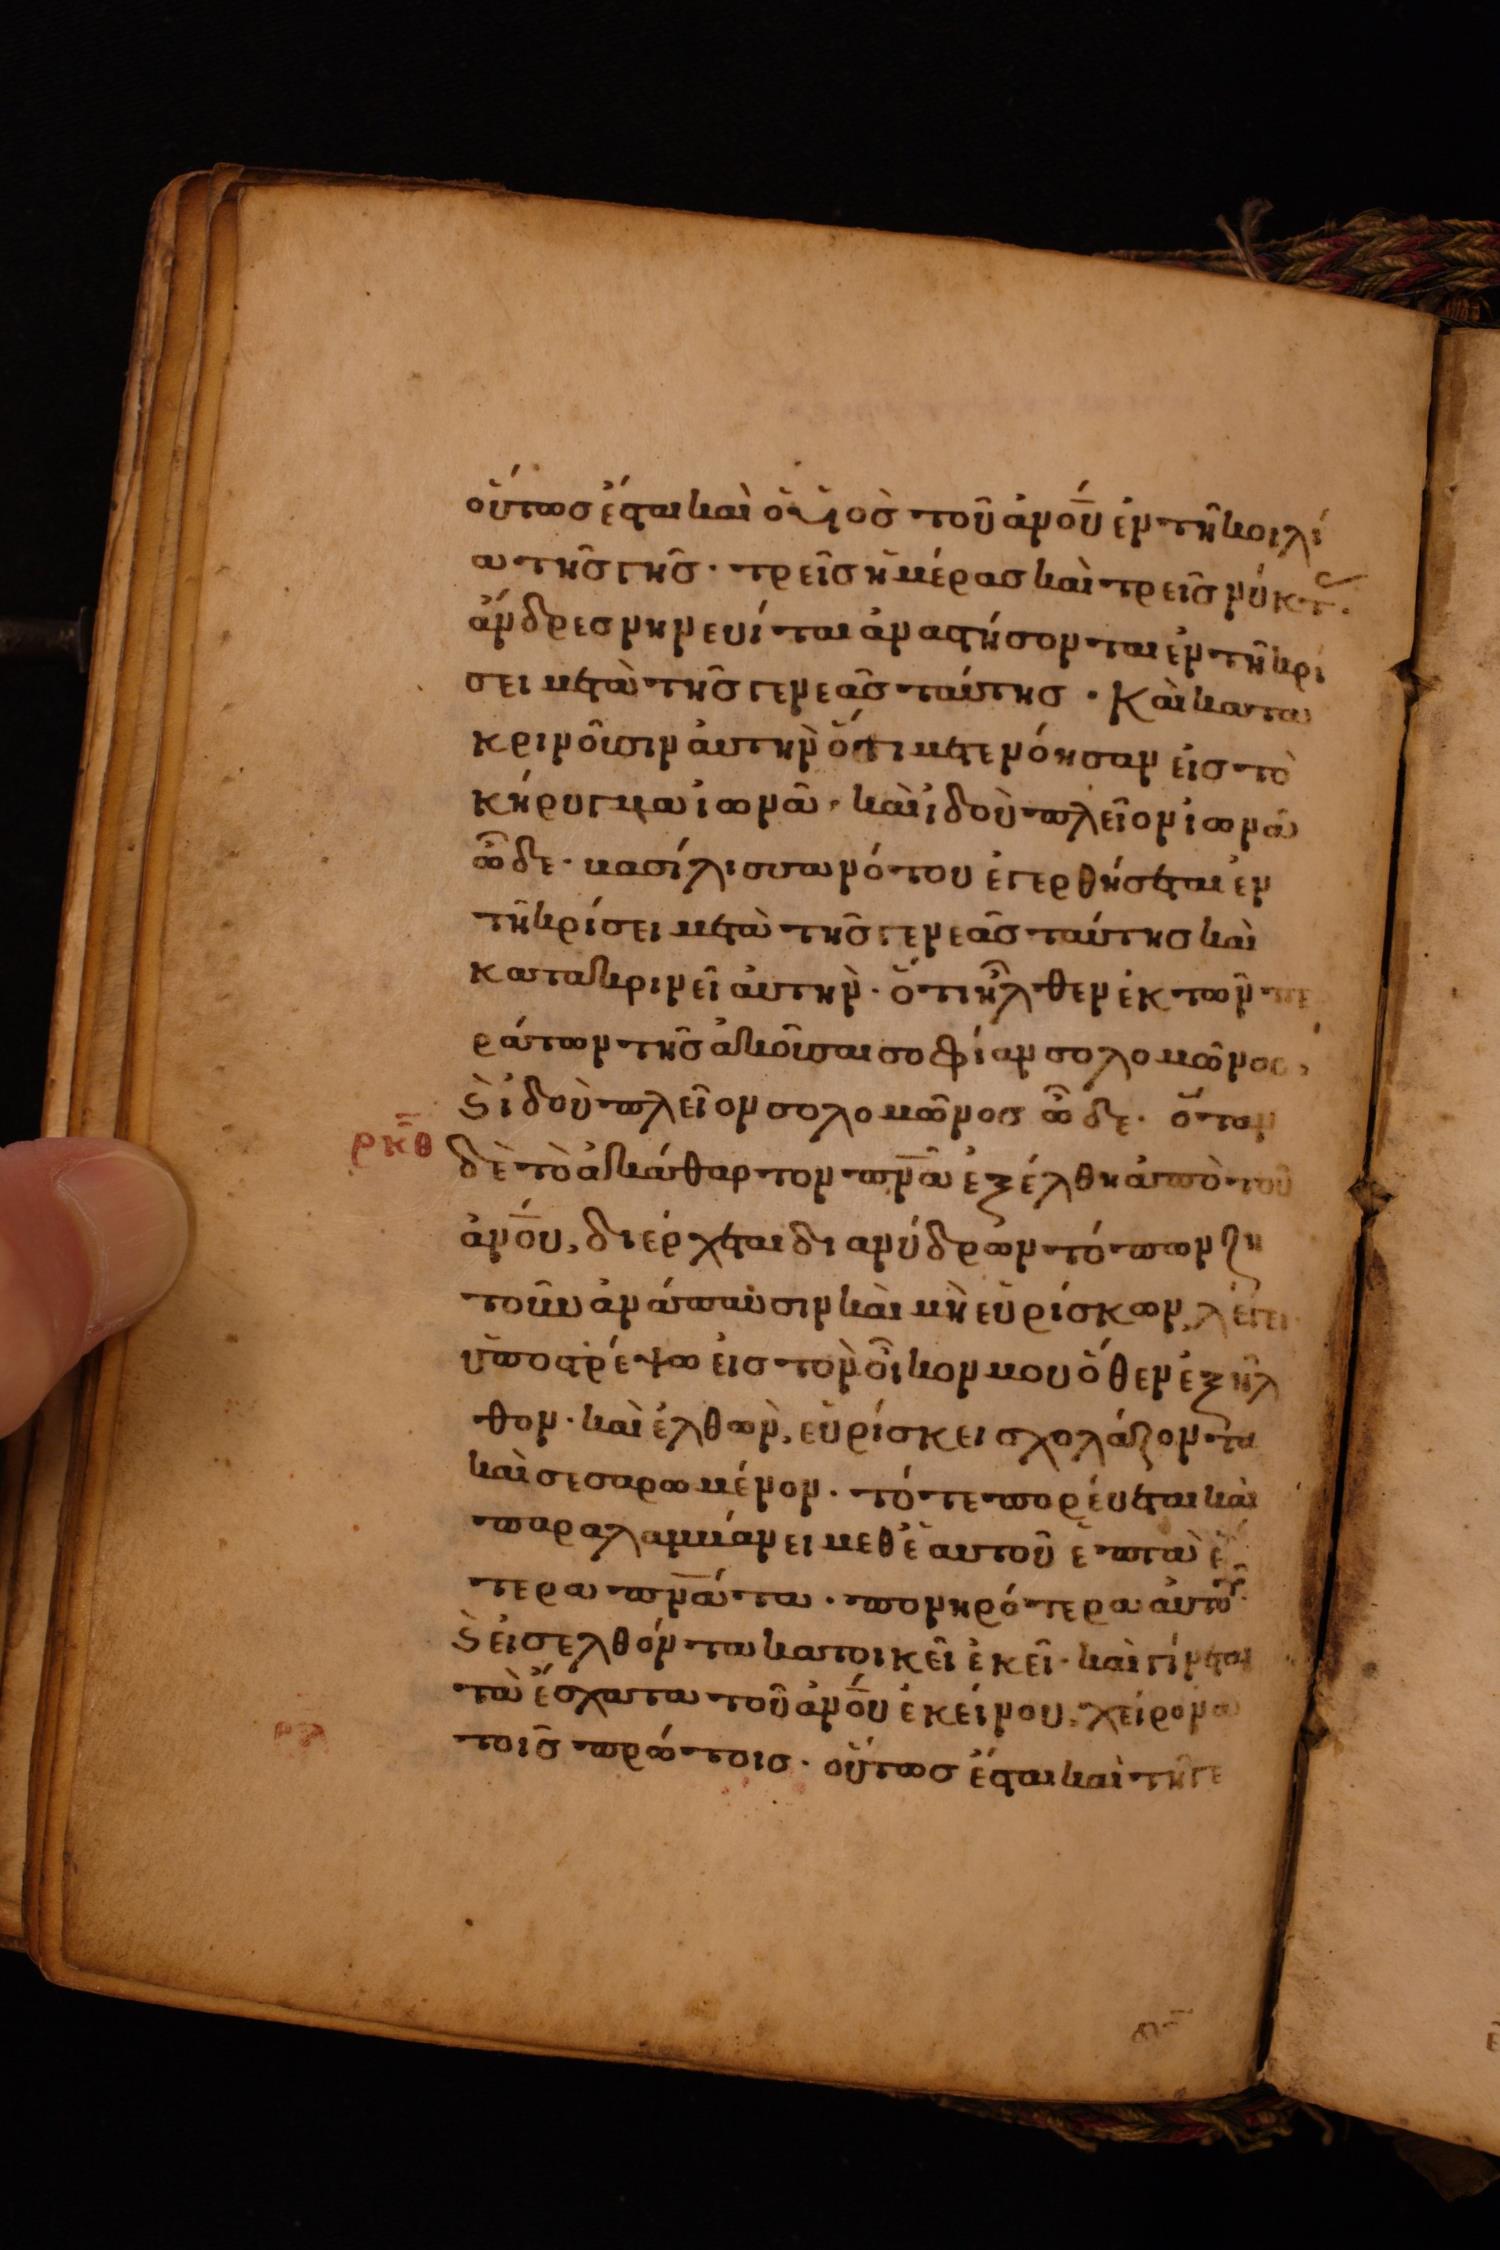 οὕτως ἔσται καὶ ὁ υἱὸς τοῦ ἀνο̅υ ἐν τῆ κοιλί
α τῆς γῆς · τρεῖς ἡμέρας καὶ τρεῖς νύκτ ·
ἄνδρες νηνευίται ἀναστήσονται ἐν τῆ κρί
σει μετὰ τῆς γενεᾶς ταύτης · Καὶ κατα
κρινοῦσιν ἀυτὴν ὅτι μετενόησαν εἰς τὸ
κήρυγμα ἰωνᾶ · καὶ ἰδοὺ πλεῖον ἰωνᾶ
ὧδε · βασίλισσα νότου ἐγερθήσεται ἐν
τῆ κρίσει μετὰ τῆς γενεᾶς ταύτης καὶ
κατακρινεῖ ἀυτὴν · ὅτι ἦλθεν ἐκ τῶν πε
ράτων τῆς ἀκοῦσαι σοφίαν σολομῶνος ,
ϗ ἰδοὺ πλεῖον σολομῶνος ὧδε · ὅταν
ρκθ δὲ τὸ ἀκάθαρτον πν̅ᾶ ἐξέλθη ἀπὸ τοῦ
ἀνο̅υ , διέρχεται δι ανύδρων τόπων ζη
τοῦν ἀνάπαυσιν καὶ μὴ εὑρίσκων , λέγει
ὑποστρέψω εἰς τὸν οἶκον μου ὅθεν ἐξῆλ
θον · καὶ ἐλθὼν , εὑρίσκει σχολάζοντα
καὶ σεσαρωμένον · τότε πορέυεται καὶ
παραλαμβάνει μεθ ἑαυτοῦ ἑπτὰ ἕ
τερα πν̅ατα · πονηρότερα ἀυτοῦ
ϗ εισελθόντα κατοικεῖ ἐκεῖ · καὶ γίνεται
τὰ ἔσχατα τοῦ ἀνο̅υ ἐκείνου , χείρονα
ρλ τοῖς πρώτοις · οὕτως ἔσται καὶ τῆ γε